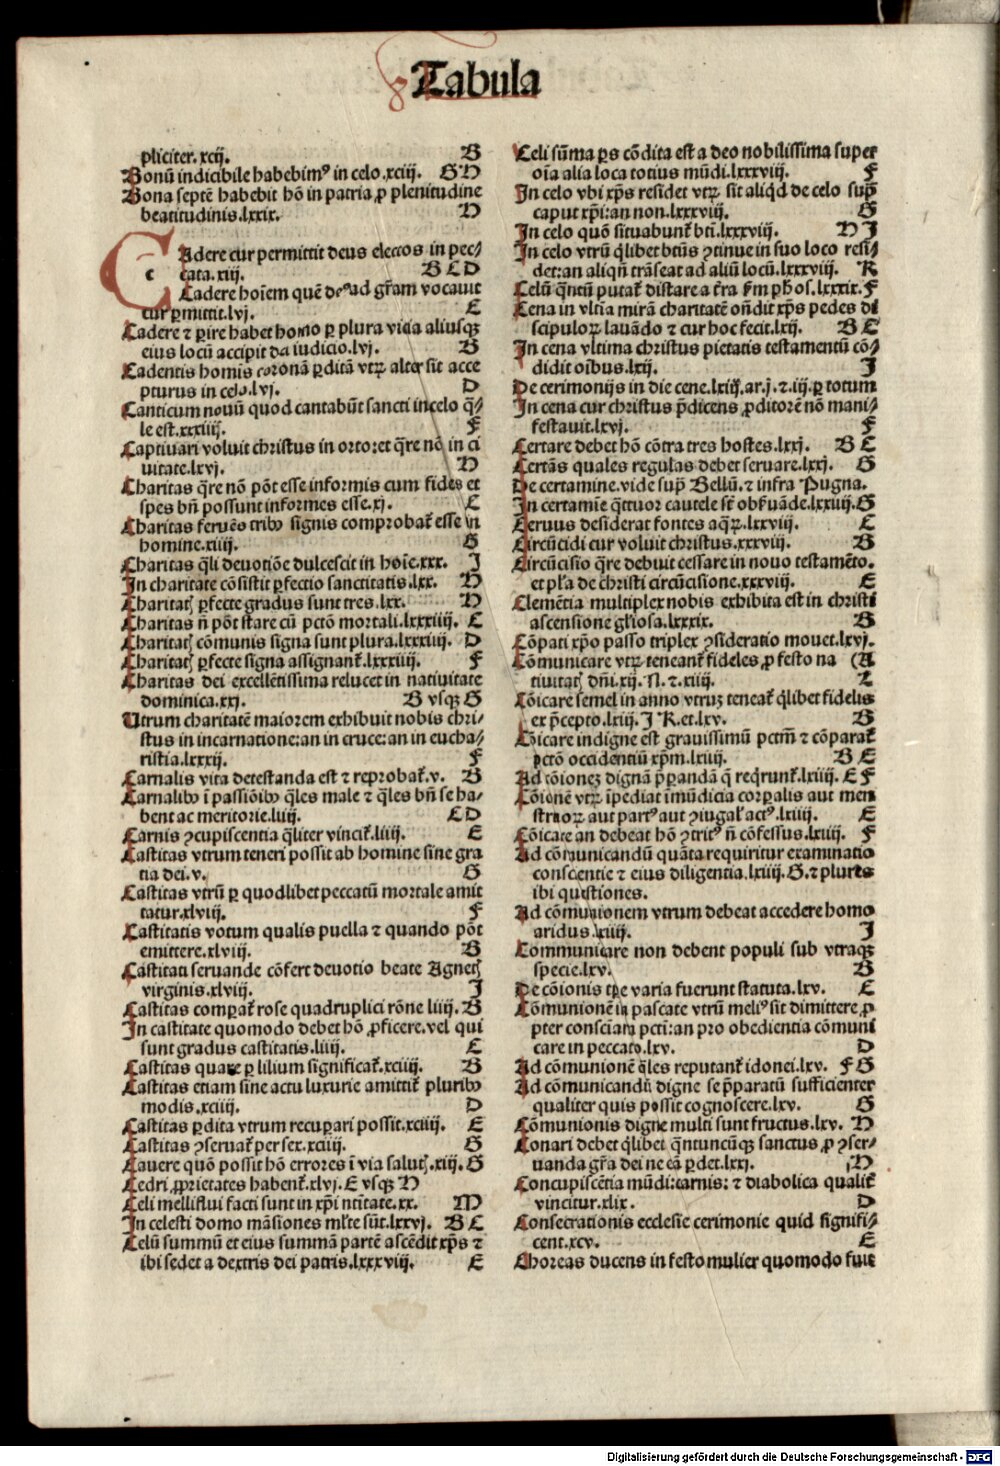 8 Tabula
pliciter.xcij. B
Bonū indicibile habebimꝰ in celo.xciij. G H
Bona septē habebit hō in patria ꝓ plenitudine
beatitudinis.lxxix. H
C
Cadere cur permittit deus electos in pec⸗
cata.xiij. B C D
Cadere hoīem quē deꝰ ad gr̄am vocauit
cur ꝑmittit.lvj. E
Cadere ⁊ ꝑire habet homo ꝑ plura vicia aliusqꝫ
eius locū accipit in iudicio.lvj. B
Cadentis homīs coronā ꝑditā vtꝝ alter sit acce
pturus in celo.lvj. D
Canticum nouū quod cantabūt sancti in celo q̄⸗
le est.xxxiiij. F
Captiuari voluit christus in orto:et q̄re nō in ci
uitate.lxvj. H
Charitas q̄re nō pōt esse informis cum fides et
spes bn̄ possunt informes esse.xj. C
Charitas feruēs tribꝰ signis comprobat̄ esse in
homine.xiiij. G
Charitas q̄li deuotiōe dulcescit in hoīe.xxx. I
In charitate cōsistit ꝑfectio sanctitatis.lxx. H
Charitatꝭ ꝑfecte gradus sunt tres.lxx. H
Charitas n̄ pōt stare cū pctō mortali.lxxxiiij. C
Charitatꝭ cōmunis signa sunt plura.lxxxiiij. D
Charitatꝭ ꝑfecte signa assignant̄.lxxxiiij. F
Charitas dei excellētissima relucet in natiuitate
dominica.xxj. B vsqꝫ G
Utrum charitatē maiorem exhibuit nobis chri⸗
stus in incarnatione:an in cruce:an in eucha⸗
ristia.lxxxij. F
Carnalis vita detestanda est ⁊ reprobat̄.v. B
Carnalibꝰ ī passiōibꝰ q̄les male ⁊ q̄les bn̄ se ha⸗
bent ac meritorie.liiij. C D
Carnis ↄcupiscentia q̄liter vincit̄.liiij. E
Castitas vtrum teneri possit ab homine sine gra
tia dei.v. G
Castitas vtrū ꝑ quodlibet peccatū mortale amit
tatur.xlviij. F
Castitatis votum qualis puella ⁊ quando pōt
emittere.xlviij. B
Castitati seruande cōfert deuotio beate Agnetꝭ
virginis.xlviij. I
Castitas comꝑat̄ rose quadruplici rōne liiij. B
In castitate quomodo debet hō ꝓficere.vel qui
sunt gradus castitatis.liiij. C
Castitas quare ꝑ lilium significat̄.xciiij. B
Castitas etiam sine actu luxurie amittit̄ pluribꝰ
modis.xciiij. D
Castitas ꝑdita vtrum recuꝑari possit.xciiij. E
Castitas ↄseruat̄ per sex.xciiij. G
Cauere quō possit hō errores ī via salutꝭ.xiij. G
Cedri ꝓprietates habent̄.xlvj. E vsqꝫ H
Celi melliflui facti sunt in xp̄i ntītate.xx. M
In celesti domo māsiones ml̄te sūt.lxxvj. B C
Celū summū et eius summā partē ascēdit xp̄s ⁊
ibi sedet a dextris dei patris.lxxxviij. E
Celi sūma ꝑs cōdita est a deo nobilissima super
oīa alia loca totius mūdi.lxxxviij. F
In celo vbi xp̄s residet vtꝝ sit aliqͥd de celo sup̄
caput xp̄i:an non.lxxxviij. G
In celo quō situabunt̄ bt̄i.lxxxviij. H I
In celo vtrū q̄libet bt̄us ↄtinue in suo loco resi⸗
det:an aliqn̄ trāseat ad aliū locū.lxxxviij. K
Celū q̄ntū putat̄ distare a t̄ra fm̄ ph̄os.lxxxix. F
Cena in vltīa mirā charitatē on̄dit xp̄s pedes di
scipuloꝝ lauādo ⁊ cur hoc fecit.lxij. B C
In cena vltima christus pietatis testamentū cō⸗
didit oībus.lxij. I
De cerimonijs in die cene.lxiij.ar.j.⁊.iij.ꝑ totum
In cena cur christus p̄dicens ꝓditorē nō mani⸗
festauit.lxvj. F
Certare debet hō cōtra tres hostes.lxxj. B C
Certās quales regulas debet seruare.lxxj. G
De certamine.vide sup̄ Bellū.⁊ infra Pugna.
In certamīe q̄ttuor cautele st̄ obẜuāde.lxxiij. G
Ceruus desiderat fontes aqͣꝝ.lxxviij. C
Circūcidi cur voluit christus.xxxviij. B
Circūcisio q̄re debuit cessare in nouo testamēto.
et pl̄a de christi circūcisione.xxxviij. E
Clemētia multiplex nobis exhibita est in christi
ascensione gl̄iosa.lxxxix. B
Cōpati xp̄o passo triplex ↄsideratio mouet.lxvj.
Cōmunicare vtꝝ teneant̄ fideles ꝓ festo na (A
tiuitatꝭ dn̄i.xij. N.⁊.xiiij. L
Cōicare semel in anno vtruꝫ teneat̄ q̄libet fidelis
ex p̄cepto.lxiij. I K.et.lxv. B
Cōicare indigne est grauissimū pctm̄ ⁊ cōparat̄
pctō occidentiū xp̄m.lxiiij. B E
Ad cōionēꝫ dignā p̄ꝑandā q̄ reqͥrunt̄.lxiiij. E F
Cōionē vtꝝ īpediat īmūdicia corꝑalis aut men
struoꝝ aut partꝰ aut ↄiugal̓ actꝰ.lxiiij. E
Cōicare an debeat hō ↄtritꝰ n̄ cōfessus.lxiiij. F
Ad cōmunicandū quāta requiritur examinatio
conscientie ⁊ eius diligentia.lxiiij. G.⁊ plures
ibi questiones.
Ad cōmunionem vtrum debeat accedere homo
aridus.xiiij. I
Communicare non debent populi sub vtraqꝫ
specie.lxv. B
De cōionis tp̄e varia fuerunt statuta.lxv. C
Cōmunionē in pascate vtrū meliꝰ sit dimittere ꝓ
pter consciam pcti:an pro obedientia cōmuni
care in peccato.lxv. D
Ad cōmunionē q̄les reputant̄ idonei.lxv. F G
Ad cōmunicandū digne se p̄paratū sufficienter
qualiter quis possit cognoscere.lxv. G
Cōmunionis digne multi sunt fructus.lxv. H
Conari debet q̄libet q̄ntuncūqꝫ sanctus ꝓ ↄser⸗
uanda gr̄a dei ne eā ꝑdet.lxxj. H
Concupiscētia mūdi:carnis:⁊ diabolica qualit̄
vincitur.xlix. D
Consecrationis ecclesie cerimonie quid signifi⸗
cent.xcv. E
Choreas ducens in festo mulier quomodo fuit
Digitalisierung gefördert durch die Deutsche Forschungsgemeinschaft - DFG